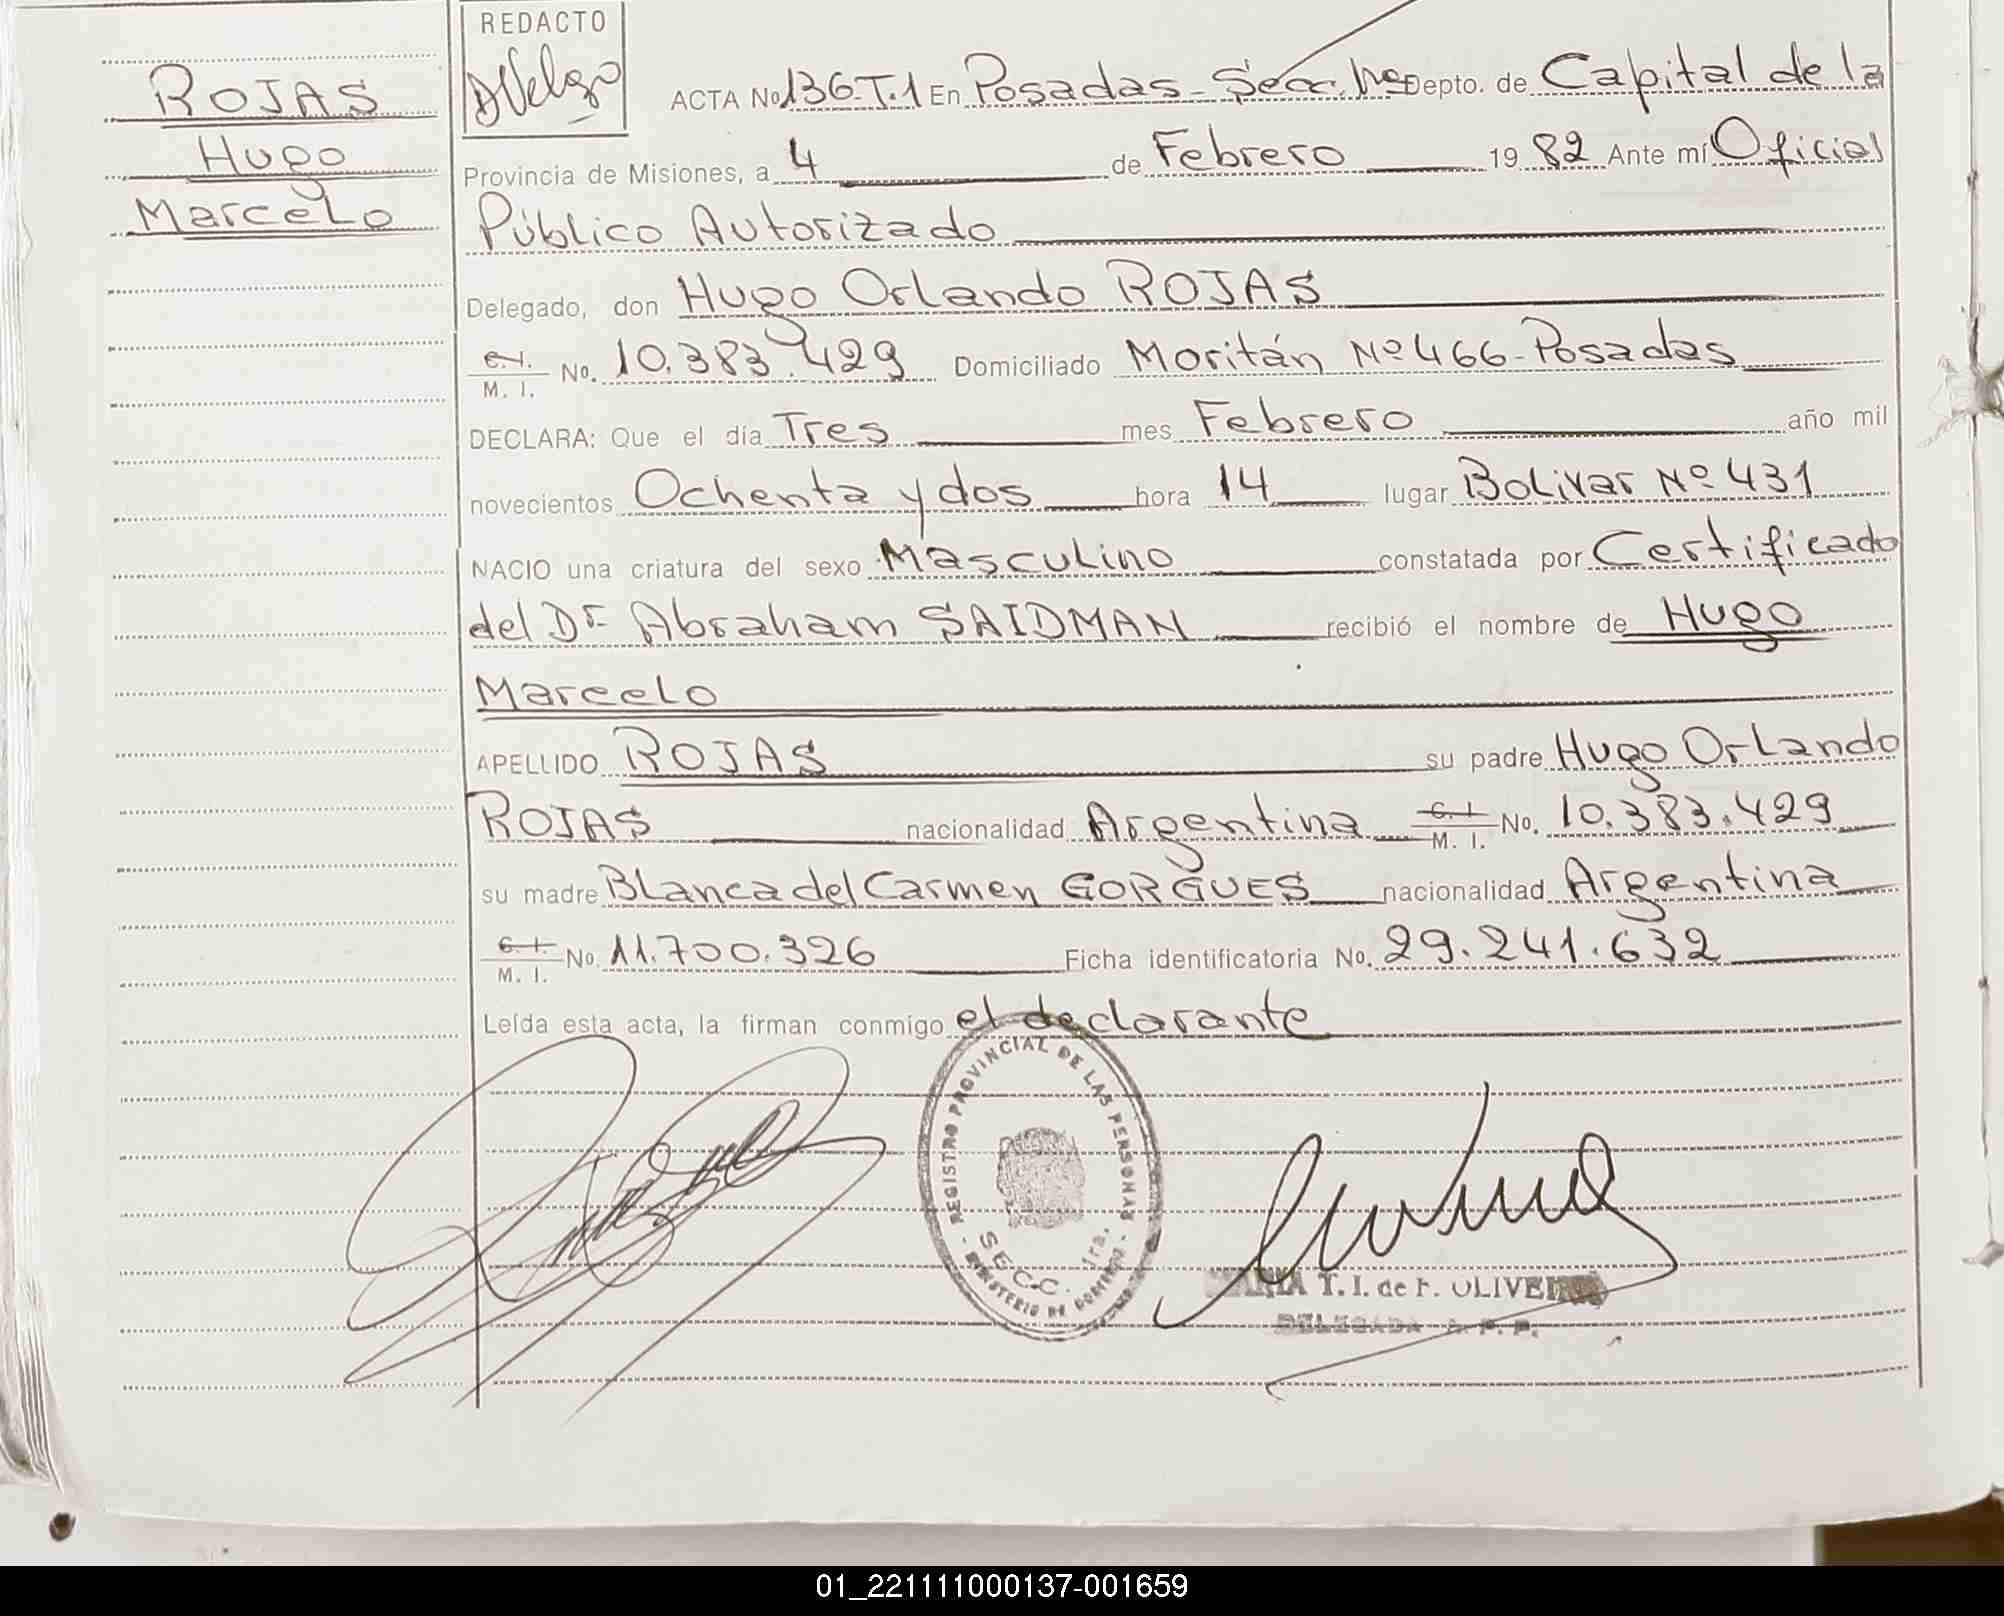 ROJAS
Hugo
Marcelo
REDACTO
ACTA No 136-T.1 En Posadas - Secc. 1ra Depto. de Capital de la
Provincia de Misiones, a 4 de Febrero 19 82 Ante mí Oficial
Público Autorizado
Delegado, don Hugo Orlando ROJAS
C. I. / M. I. No. 10.383.429 Domiciliado Moritán Nº 466 - Posadas
DECLARA: Que el día Tres mes Febrero año mil
novecientos Ochenta y dos hora 14 lugar Bolivar Nº 431
NACIO una criatura del sexo Masculino constatada por Certificado
del Dr. Abraham SAIDMAN recibió el nombre de Hugo
Marcelo
APELLIDO ROJAS su padre Hugo Orlando
ROJAS nacionalidad Argentina C. I. / M. I. No. 10.383.429
su madre Blanca del Carmen GORGUES nacionalidad Argentina
C. I. / M. I. No. 11.700.326 Ficha identificatoria No. 29.241.632
Leída esta acta, la firman conmigo el declarante
REGISTRO PROVINCIAL DE LAS PERSONAS
SECC. 1ra.
MINISTERIO DE GOBIERNO
T. I. de F. OLIVEIRA
DELEGADA R. P. P.
01_221111000137-001659